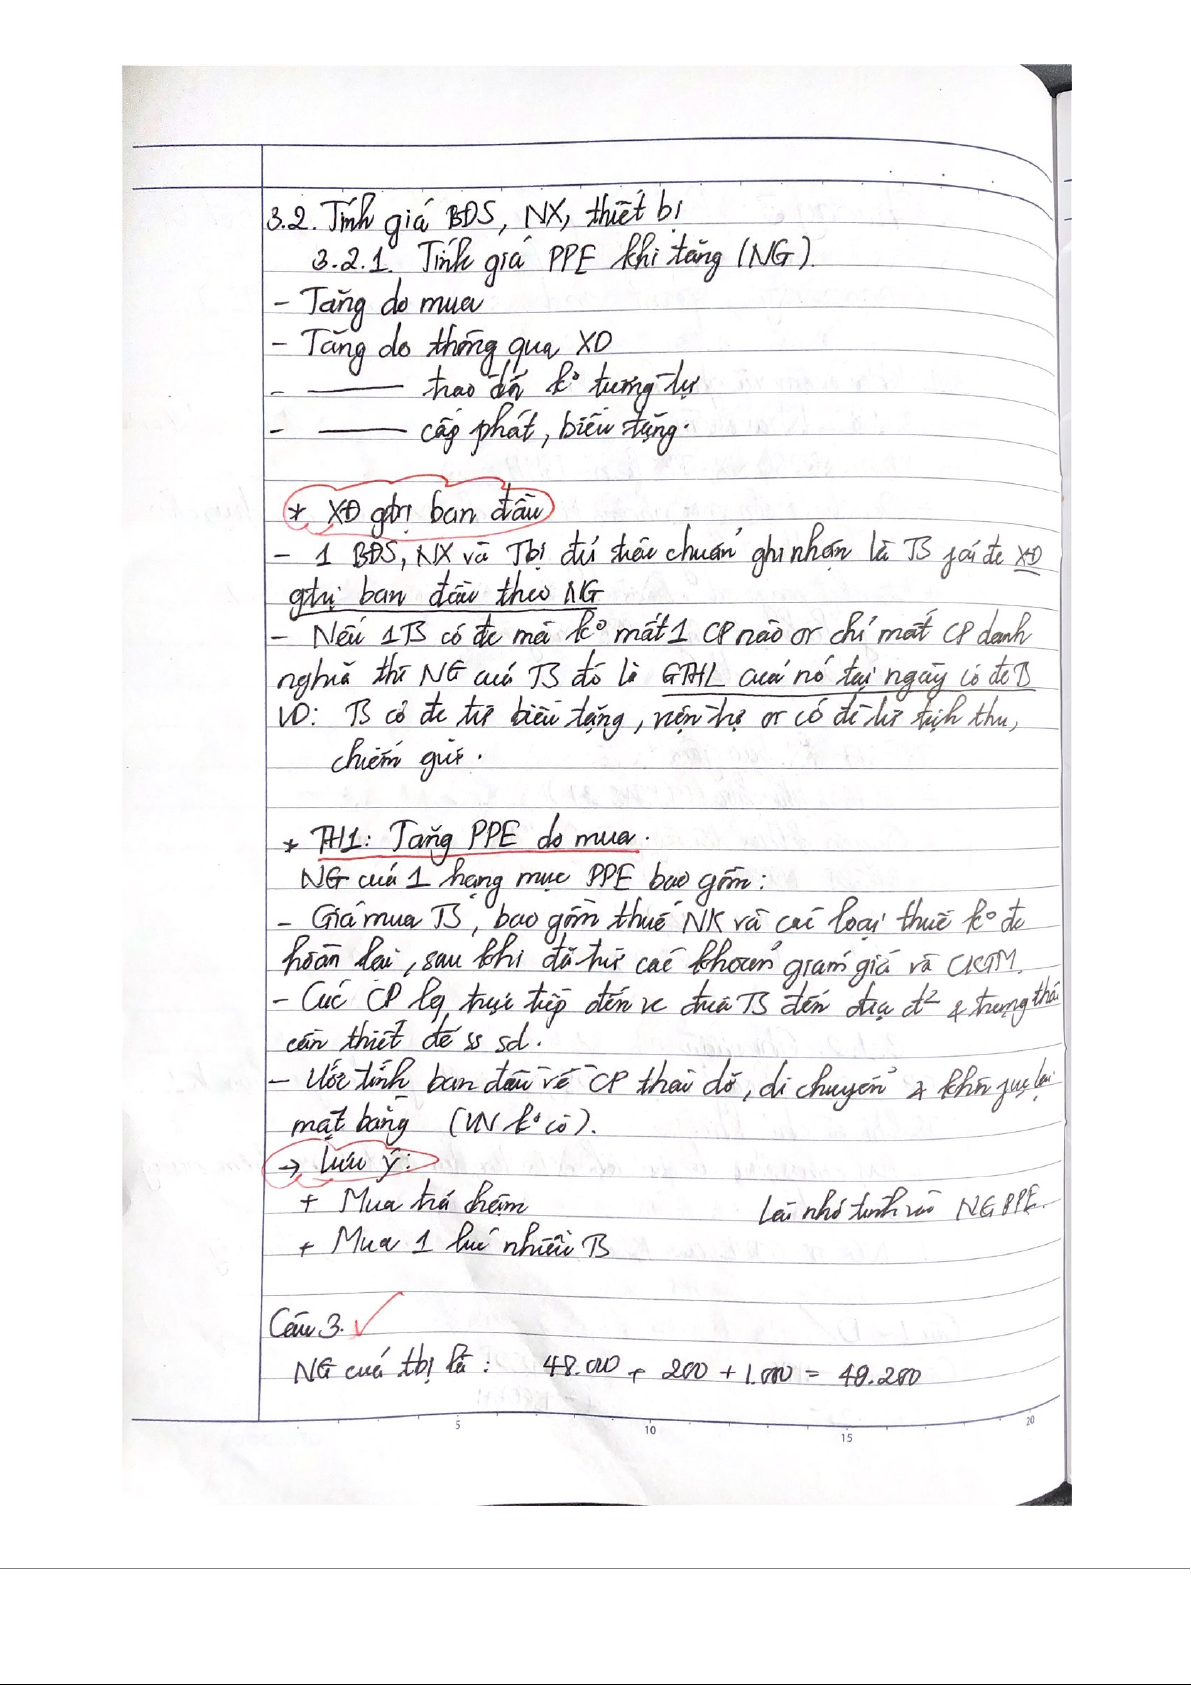 3.2. Tính giá BĐS, NX, thiết bị
3.2.1. Tính giá PPE khi tăng (NG).
- Tăng do mua
- Tăng do thông qua XD
- ——— trao đổi k° tương tự
- ——— cấp phát, biếu tặng.
* XĐ gtrị ban đầu
- 1 BĐS, NX và Tbị đủ tiêu chuẩn ghi nhận là TS fải đc XĐ
gtrị ban đầu theo NG
- Nếu 1 TS có đc mà k° mất 1 CP nào or chỉ mất CP danh
nghĩa thì NG của TS đó là GTHL của nó tại ngày có đc TS
VD: TS có đc từ biếu tặng, viện trợ or có đc từ tịch thu,
chiếm giữ.
* TH1: Tăng PPE do mua.
NG của 1 hạng mục PPE bao gồm:
- Giá mua TS, bao gồm thuế NK và các loại thuế k° đc
hoàn lại, sau khi đã trừ các khoản giảm giá và CKTM.
- Các CP lq trực tiếp đến vc đưa TS đến địa đ² & trạng thái
cần thiết để ss sd.
- Ước tính ban đầu về CP tháo dỡ, di chuyển & khôi fục lại
mặt bằng (VN k° có).
→ Lưu ý:
+ Mua trả chậm
Lãi nhớ tính vào NG PPE.
+ Mua 1 lúc nhiều TS
Câu 3. ✓
NG của tbị là: 48.000 + 200 + 1.000 = 49.200
5
10
15
20